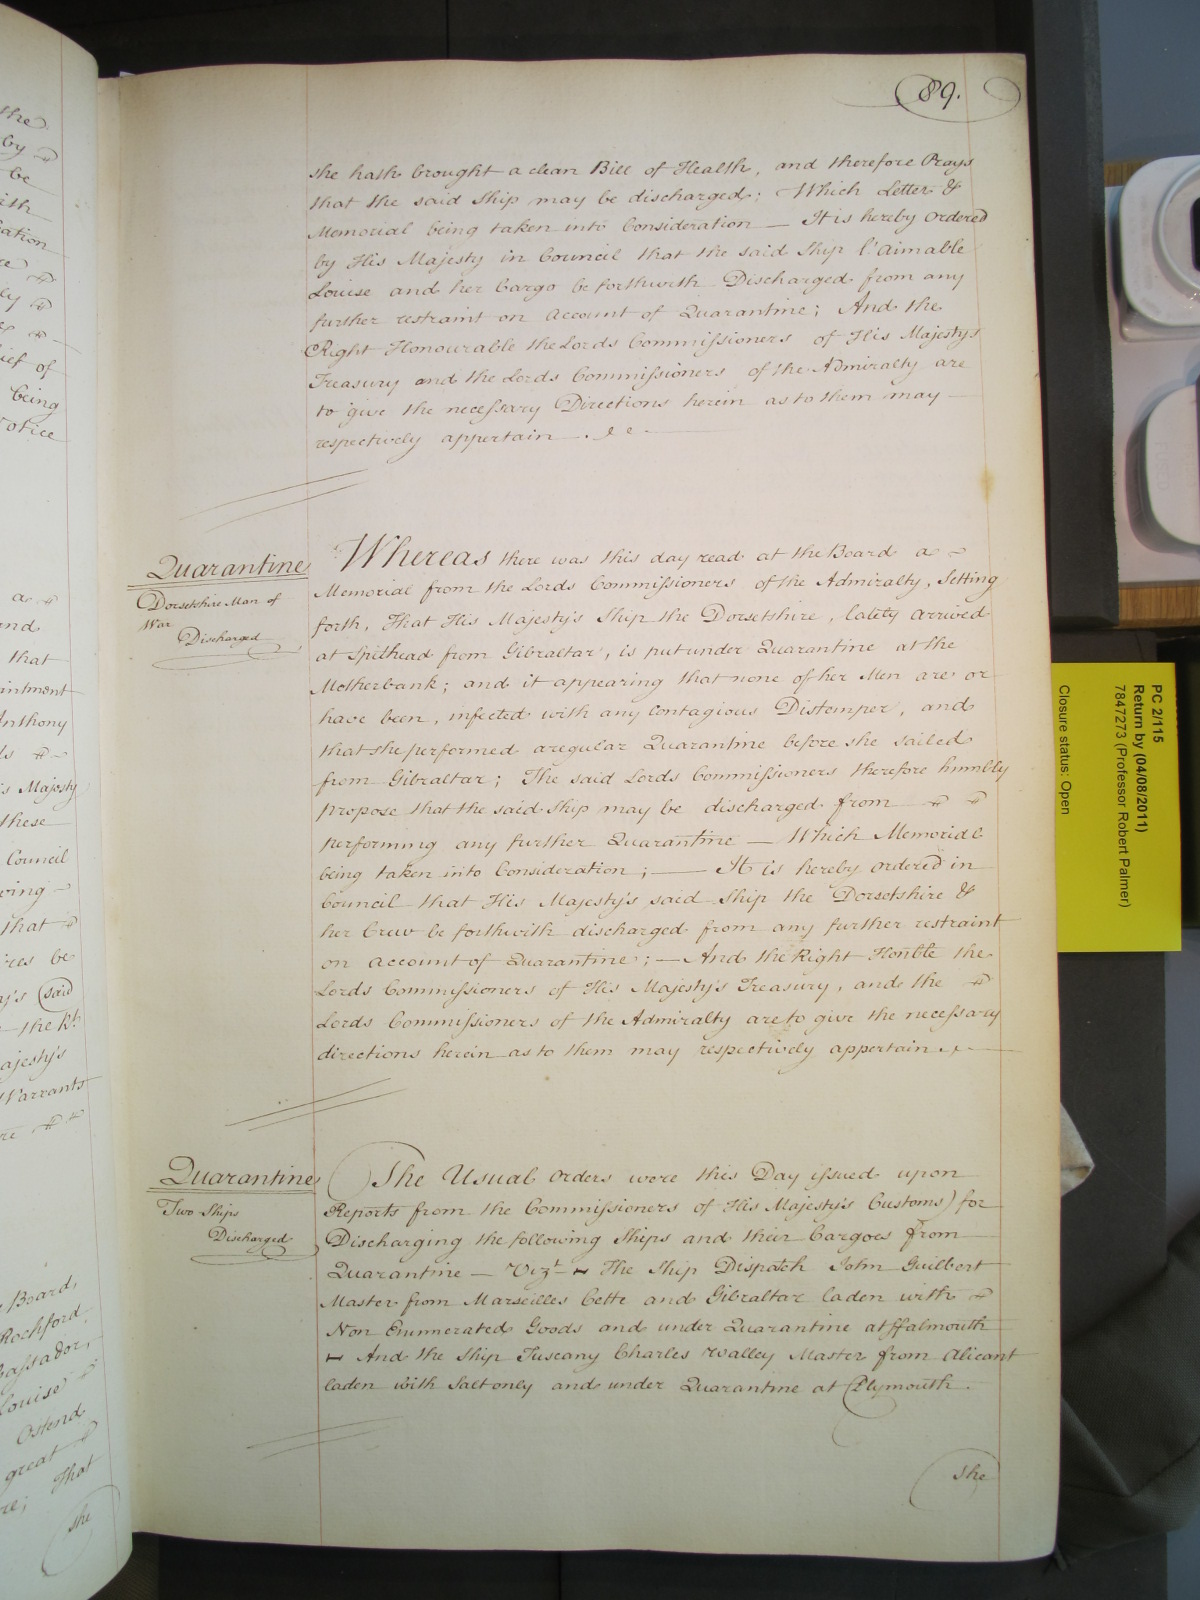 89.
she hath brought a clean Bill of Health, and therefore Prays
that the said Ship may be discharged; Which Letter &
Memorial being taken into Consideration — It is hereby ordered
by His Majesty in Council that the said Ship l'Aimable
Louise and her Cargo be forthwith Discharged from any
further restraint on Account of Quarantine; And the
Right Honourable the Lords Commissioners of His Majesty's
Treasury and the Lords Commissioners of the Admiralty are
to give the necessary Directions herein as to them may —
respectively appertain.
Quarantine
Dorsetshire Man of
War
Discharged
Whereas there was this day read at the Board a
Memorial from the Lords Commissioners of the Admiralty, Setting
forth, That His Majesty's Ship the Dorsetshire, lately arrived
at Spithead from Gibraltar, is put under Quarantine at the
Motherbank; and it appearing that none of her Men are or
have been, infected with any Contagious Distemper, and
that she performed a regular Quarantine before she sailed
from Gibraltar; The said Lords Commissioners therefore humbly
propose that the said Ship may be discharged from
performing any further Quarantine — Which Memorial
being taken into Consideration; — It is hereby ordered in
Council that His Majesty's said Ship the Dorsetshire &
her Crew be forthwith discharged from any further restraint
on account of Quarantine; — And the Right Honble the
Lords Commissioners of His Majesty's Treasury, and the
Lords Commissioners of the Admiralty are to give the necessary
directions herein as to them may respectively appertain.
Quarantine
Two Ships
Discharged
The Usual orders were this Day issued upon
Reports from the Commissioners of His Majesty's Customs) for
Discharging the following Ships and their Cargoes from
Quarantine — Vizt — The Ship Dispatch John Guilbert
Master from Marseilles Cette and Gibraltar laden with
Non Enumerated Goods and under Quarantine at ffalmouth
— And the Ship Tuscany Charles Walley Master from Alicant
laden with Salt only and under Quarantine at Plymouth.
She
PC 2/115
Return by (04/08/2011)
7847273 (Professor Robert Palmer)
Closure status: Open
the
by
be
ief of
being
Notice
a
and
that
intment
Anthony
Majesty
these
Council
that
res be
said
the Rt
ajesty's
Warrants
Board,
Rochford,
bassador,
Louise
Ostend
great
That
she